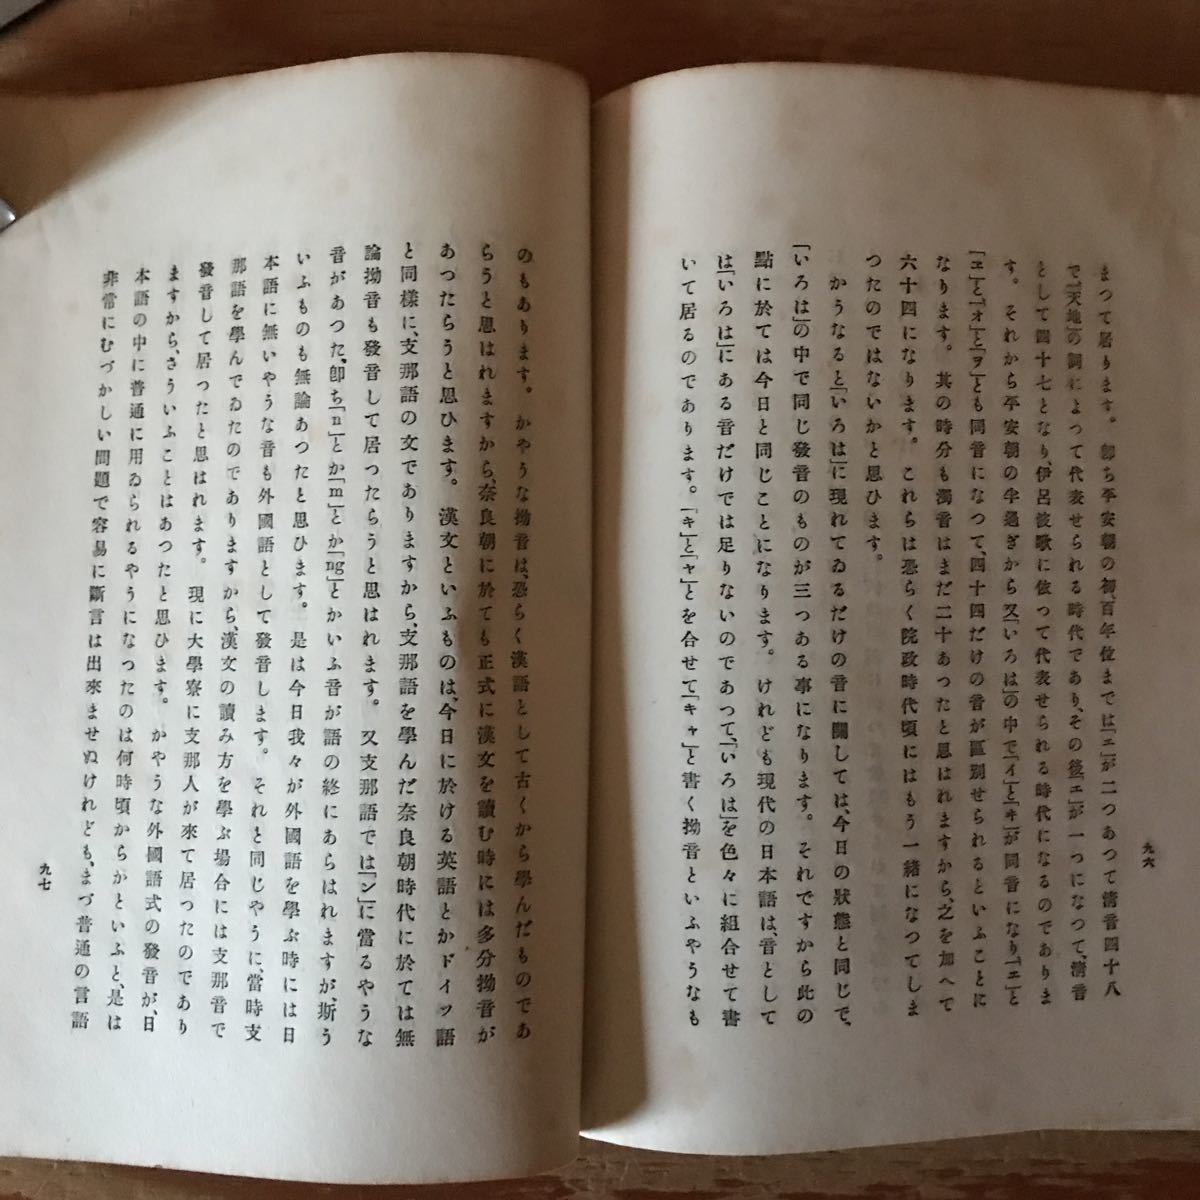 九六
まつて居ります。卽ち平安朝の初、百年位までは「エ」が二つあつて淸音四十八
で「天地」の詞によつて代表せられる時代であり、その後「エ」が一つになつて、淸音
として四十七となり、伊呂波歌に依つて代表せられる時代になるのでありま
す。それから平安朝の半過ぎから又「いろは」の中で「イ」と「ヰ」が同音になり「エ」と
「ヱ」と「オ」と「ヲ」とも同音になつて、四十四だけの音が區別せられるといふことに
なります。其の時分も濁音はまだ二十あつたと思はれますから、之を加へて
六十四になります。これらは恐らく院政時代頃にはもう一緒になつてしま
つたのではないかと思ひます。
かうなると「いろは」に現れてゐるだけの音に關しては、今日の狀態と同じで、
「いろは」の中で同じ發音のものが三つある事になります。それですから此の
點に於ては今日と同じことになります。けれども現代の日本語は、音として
は「いろは」にある音だけでは足りないのであつて、「いろは」を色々に組合せて書
いて居るのであります。「キ」と「ヤ」とを合せて「キャ」と書く拗音といふやうなも
のもあります。かやうな拗音は、恐らく漢語として古くから學んだものであ
らうと思はれますから、奈良朝に於ても正式に漢文を讀む時には多分拗音が
あつたらうと思ひます。漢文といふものは、今日に於ける英語とかドイツ語
と同樣に、支那語の文でありますから、支那語を學んだ奈良朝時代に於ては無
論拗音も發音して居つたらうと思はれます。又支那語では「ン」に當るやうな
音があつた、卽ち「n」とか「m」とか「ng」とかいふ音が語の終にあらはれますが、斯う
いふものも無論あつたと思ひます。是は今日我々が外國語を學ぶ時には日
本語に無いやうな音も外國語として發音します。それと同じやうに、當時支
那語を學んでゐたのでありますから、漢文の讀み方を學ぶ場合には支那音で
發音して居つたと思はれます。現に大學寮に支那人が來て居つたのであり
ますから、さういふことはあつたと思ひます。かやうな外國語式の發音が、日
本語の中に普通に用ゐられるやうになつたのは何時頃からかといふと、是は
非常にむづかしい問題で容易に斷言は出來ませぬけれども、まづ普通の言語
九七